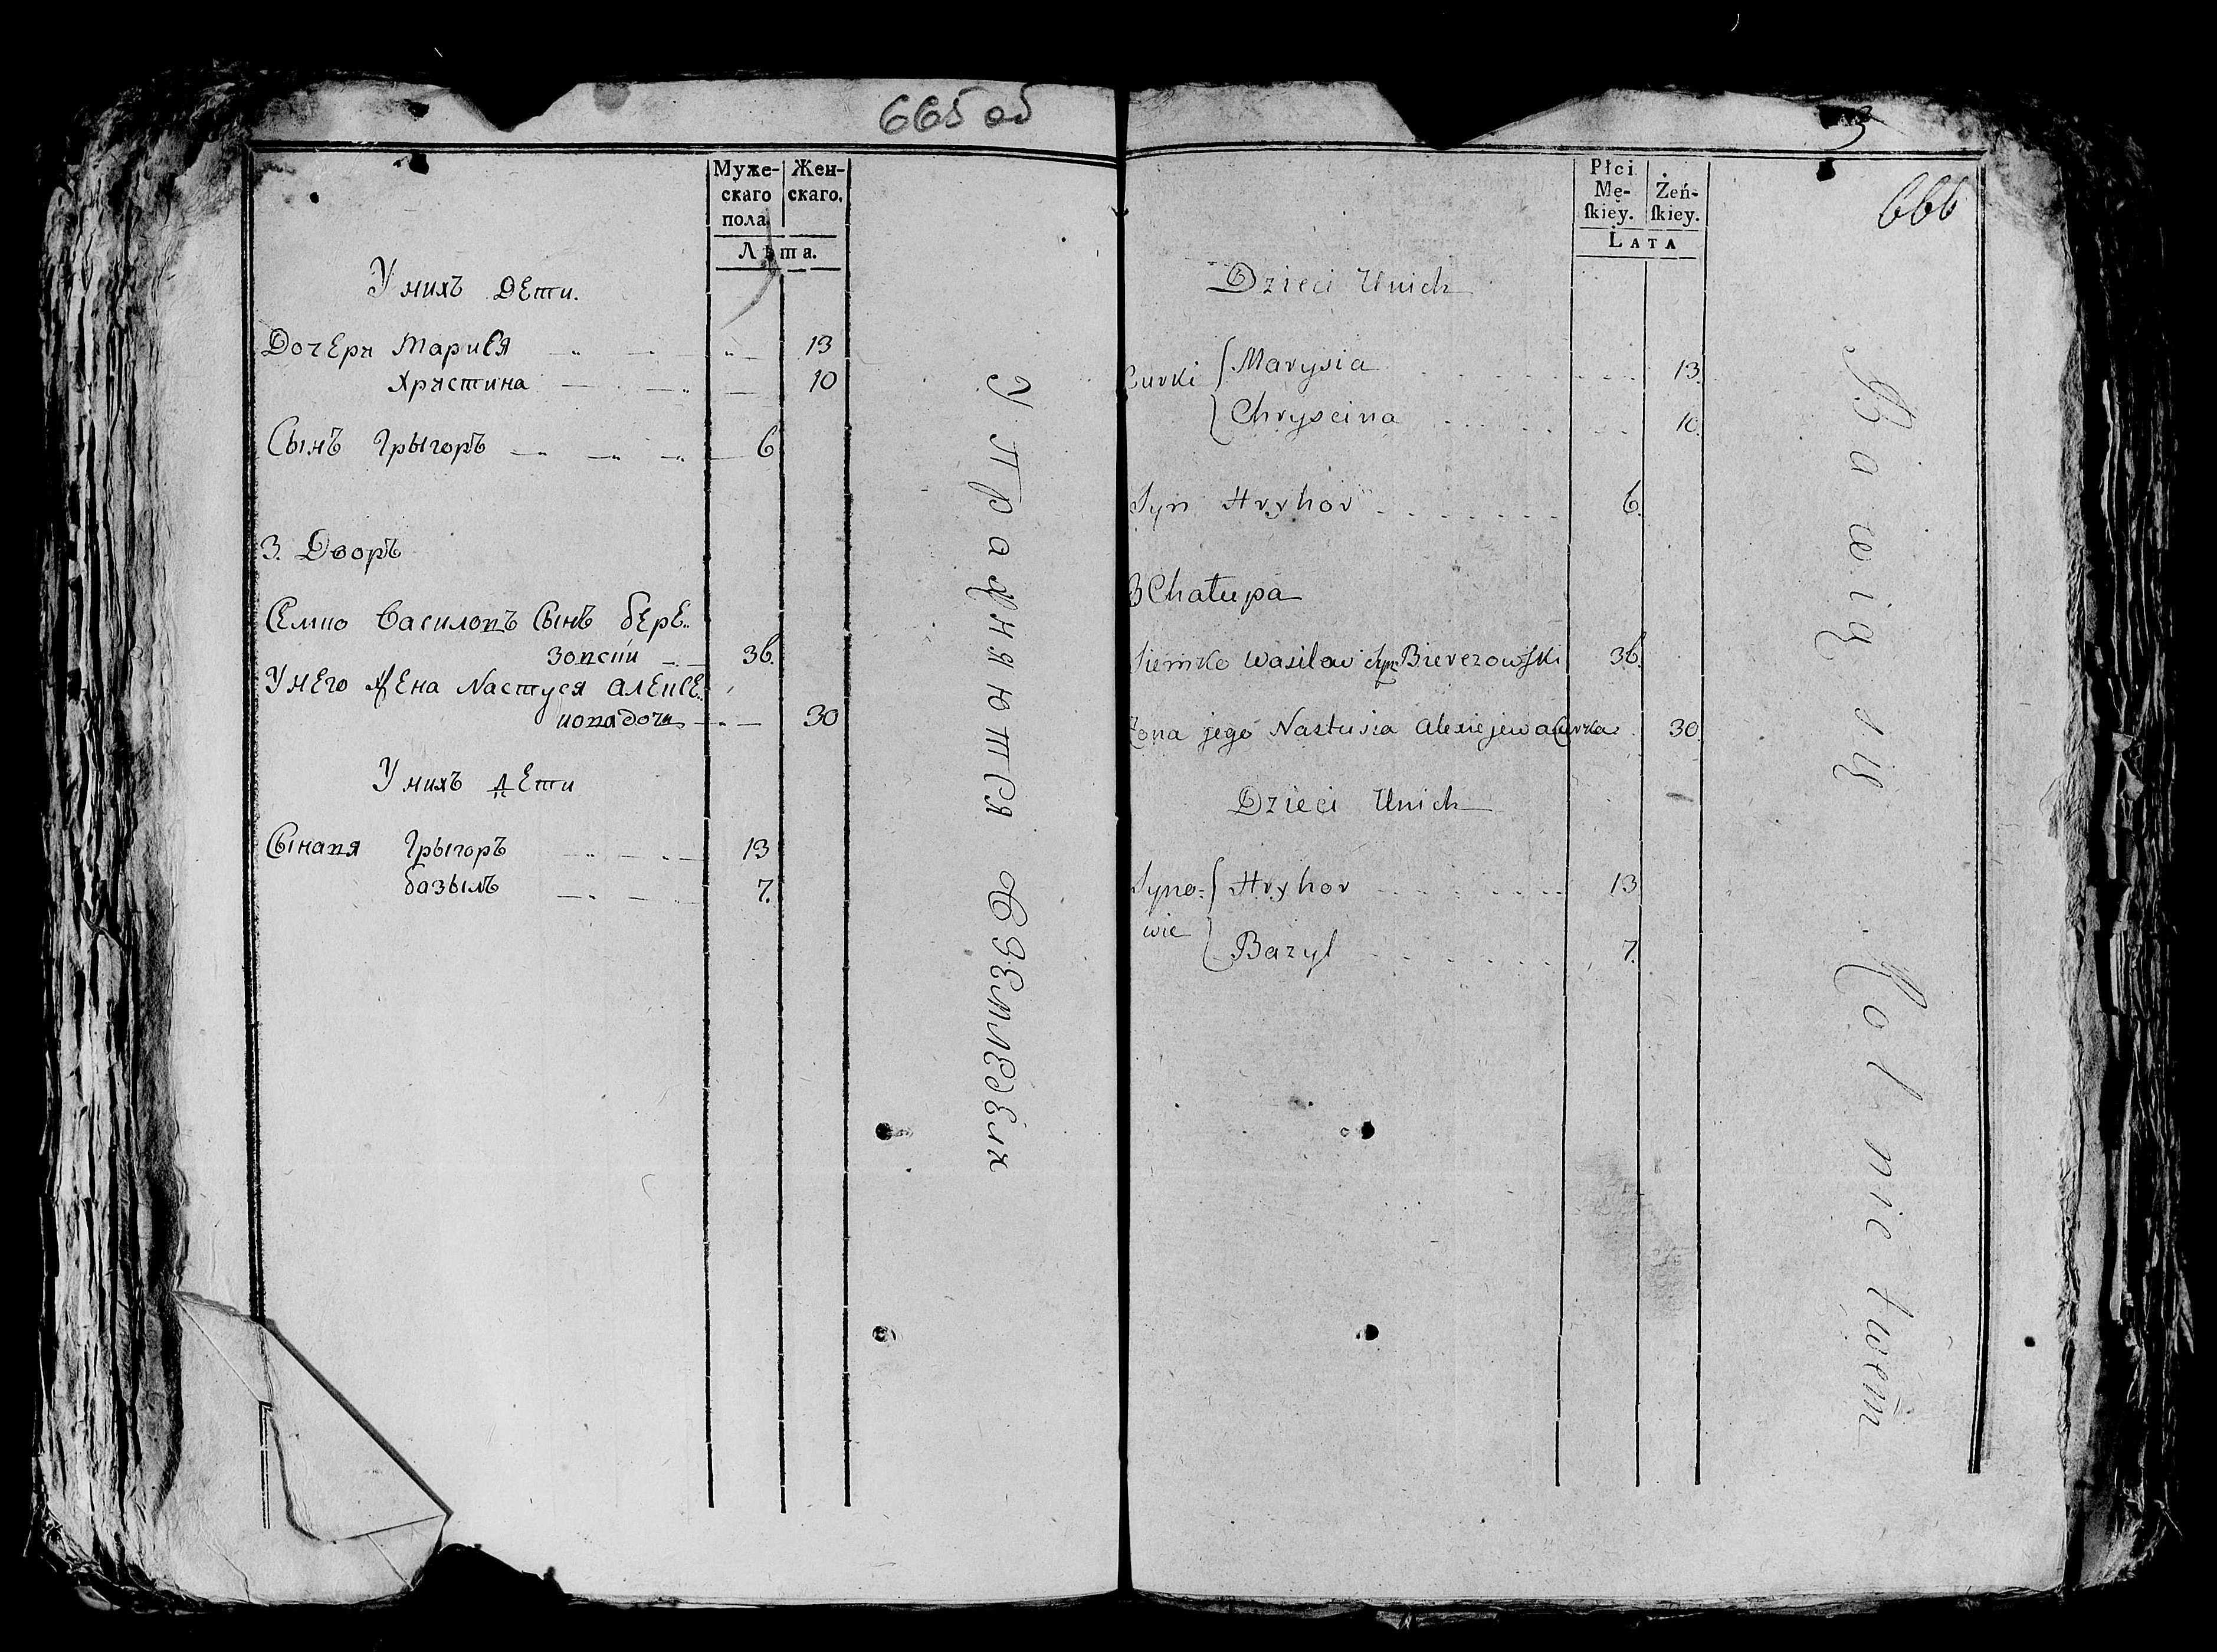 665 об
Муже-
скаго
пола.
Жен-
скаго.
Лѣта.
У нихъ дети.
Дочери Марися 13
Христина 10
Сынъ Грыгоръ 6
3. Дворъ
Семко Василовъ Сынъ бере-
зовски 36.
У него жена Настуся алексе-
ювадочи 30
У нихъ дети
Сынавя Грыгоръ 13
базыль 7.
Упражнются
Хземледели
3
666
Płci
Mę-
ſkiey.
Żeń-
ſkiey.
LATA
Dzieci Unich
Curki { Marysia 13.
Chryscina 10.
Syn Hryhor 6.
3 Chałupa
Siemko Wasilow Syn Bierezowſki 36.
Żona jego Nastusia Alexiejewa Curka 30.
Dzieci Unich
Syno- { Hryhor 13
wie { Bazyl 7.
Bawią się
Rolnictwem